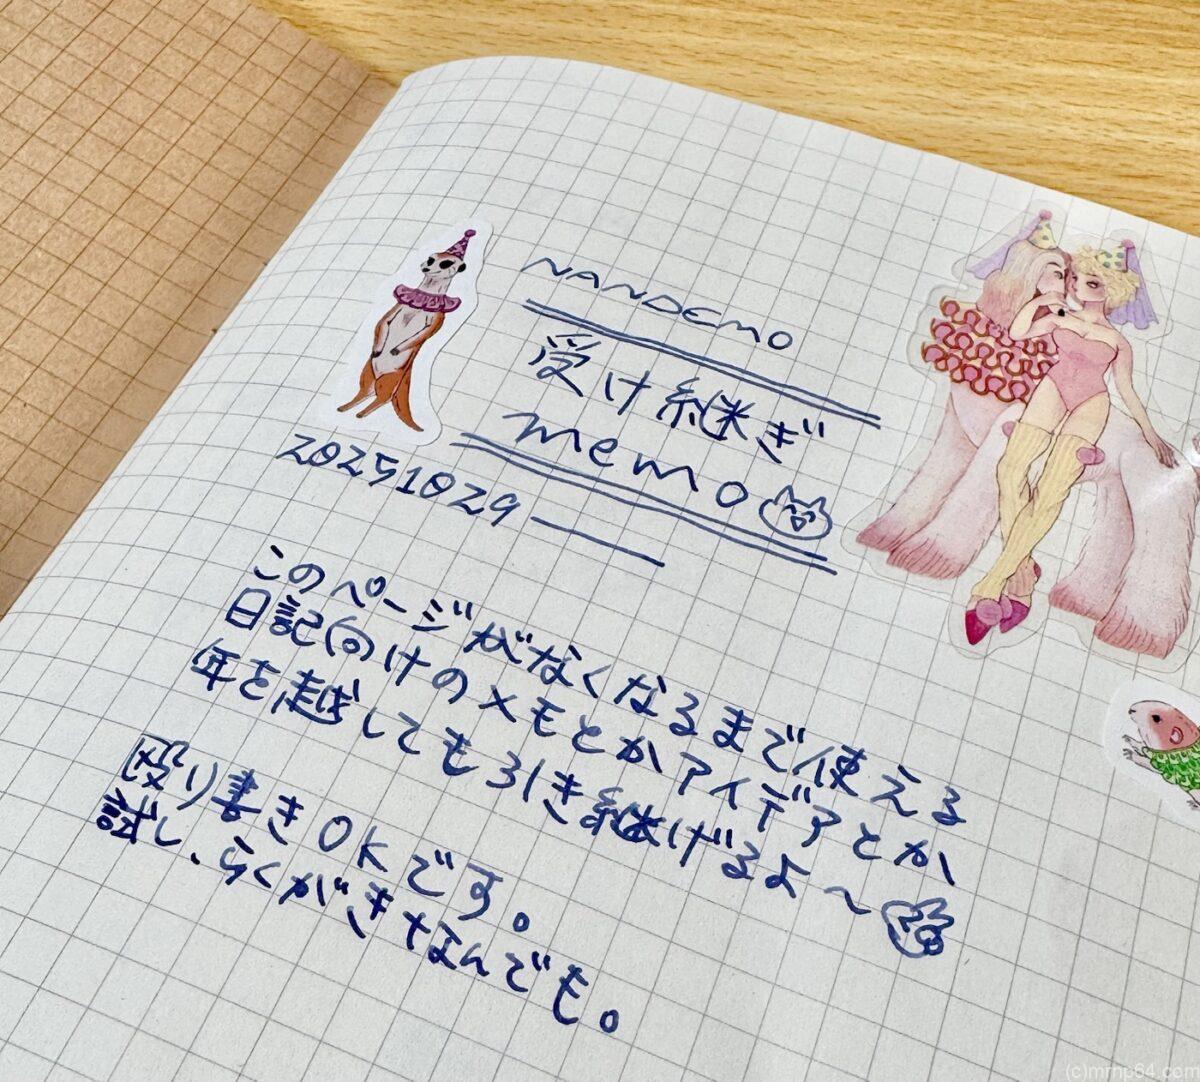 NANDEMO
受け継ぎ
memo
20251029
このページがなくなるまで使える
日記向けのメモとかアイデアとか
年を越しても引き継げるよ〜
殴り書きOKです。
試し、らくがきなんでも。
(c)mrnp64.com